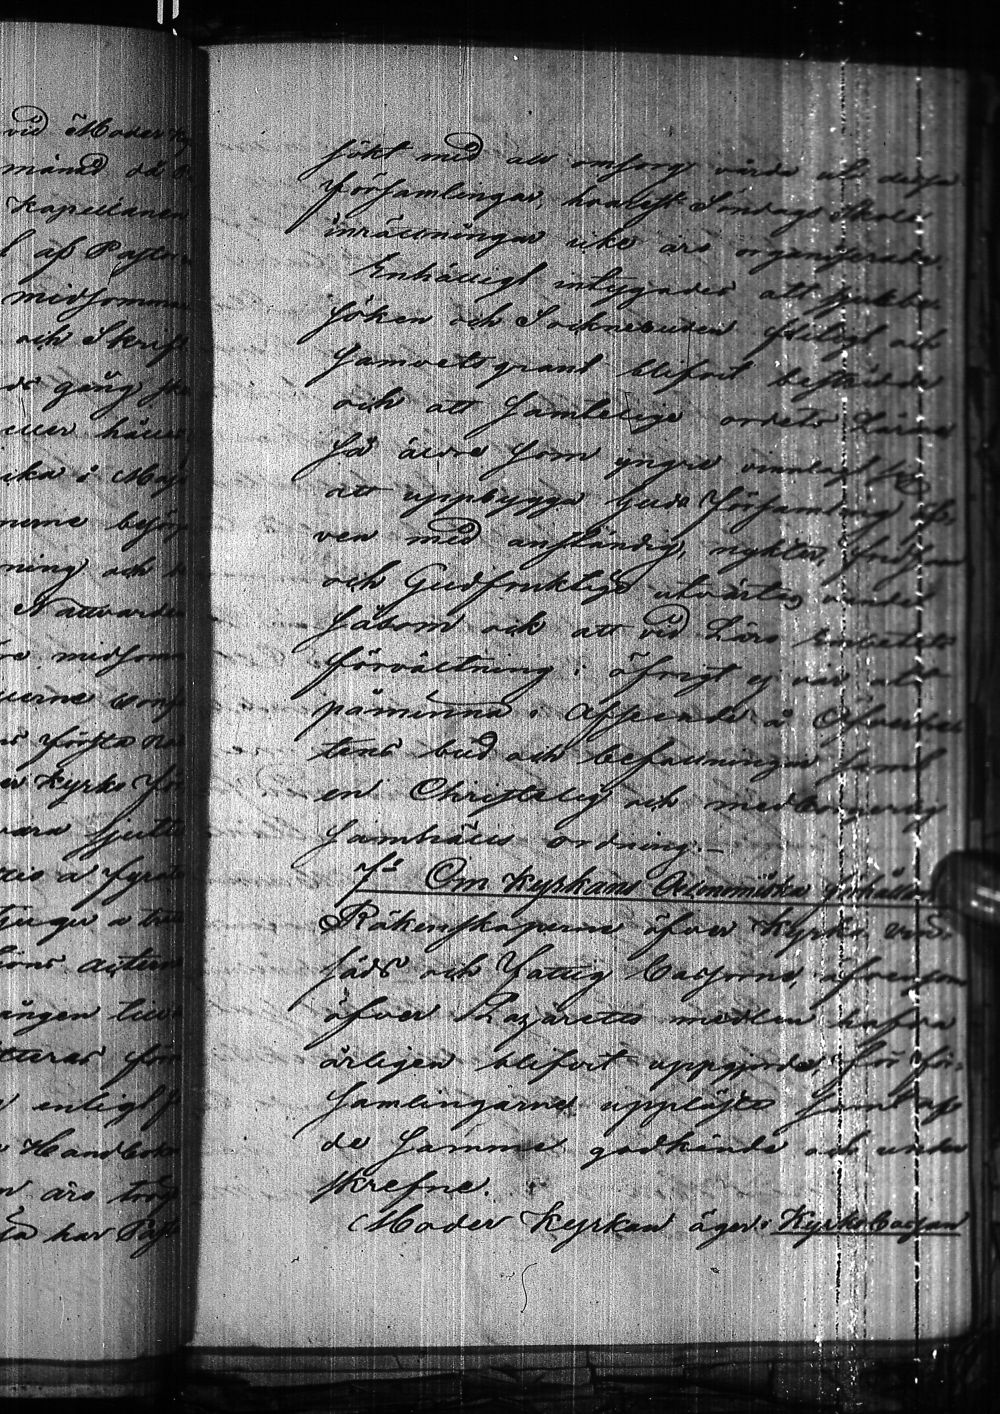 vid Moder Ky
månd då
Kapellanen
l af Pasto
midsomma
och Skrif
ds gång
eller hålle
ika i Maj
nume
ning och
Nattvarden
re midsom
lerne
s första
er Kyrko fö
vara
a fyra
a
löns
ången till
tteras för
r enligt
r Handbok
n äro
ja har
sökt med all omsorg vårda uti dessa
församlingar, hvarest Söndags Skole
inrättningar icke äro organiserade.
Enhälligt intygades att sjukbe
söken och Socknebuden flitigt och
samvetsgrant blifvit bestridda
och att samtelige ordets Lärare
så äldre som yngre vinnlagt sig
att uppbygga Guds församling äf-
ven med anständig, nykter,
och Gudfruktigt utvärtes vandel
såsom ock att vid Läro Embetets
förvaltning i öfrigt ej var att
påminna i Afseende å Öfverhe
tens bud och befallningar samt
en Christelig och medborgerlig
samhälls ordning.—
7o Om Kyrkans Oeconomiska förhålland
Räkenskaperne öfver Kyrko,
säds och Fattig Cassorne, äfvensom
öfver Lazaretts medlen hafva
årligen blifvit uppgjorde, för För-
samlingarne uppläste samt af
de samme godkände och under
skrefne.
Moder Kyrkan äger: Kyrko Cassan